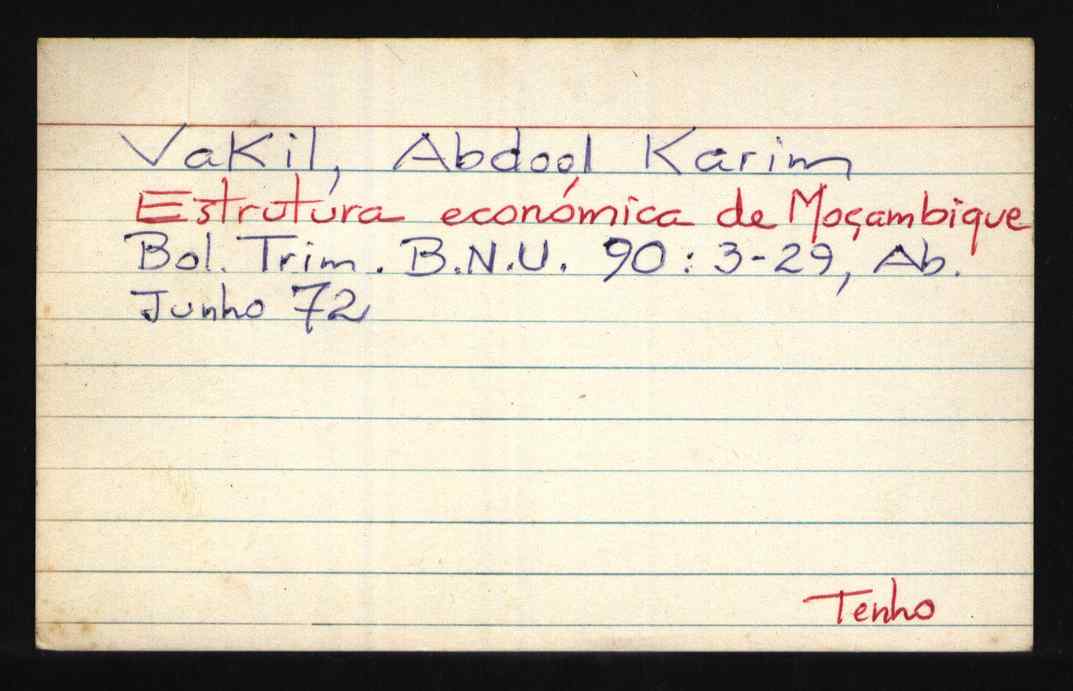 Vakil, Abdool Karim
Estrutura económica de Moçambique
Bol. Trim. B.N.U. 90: 3-29, Ab.
Junho 72
Tenho